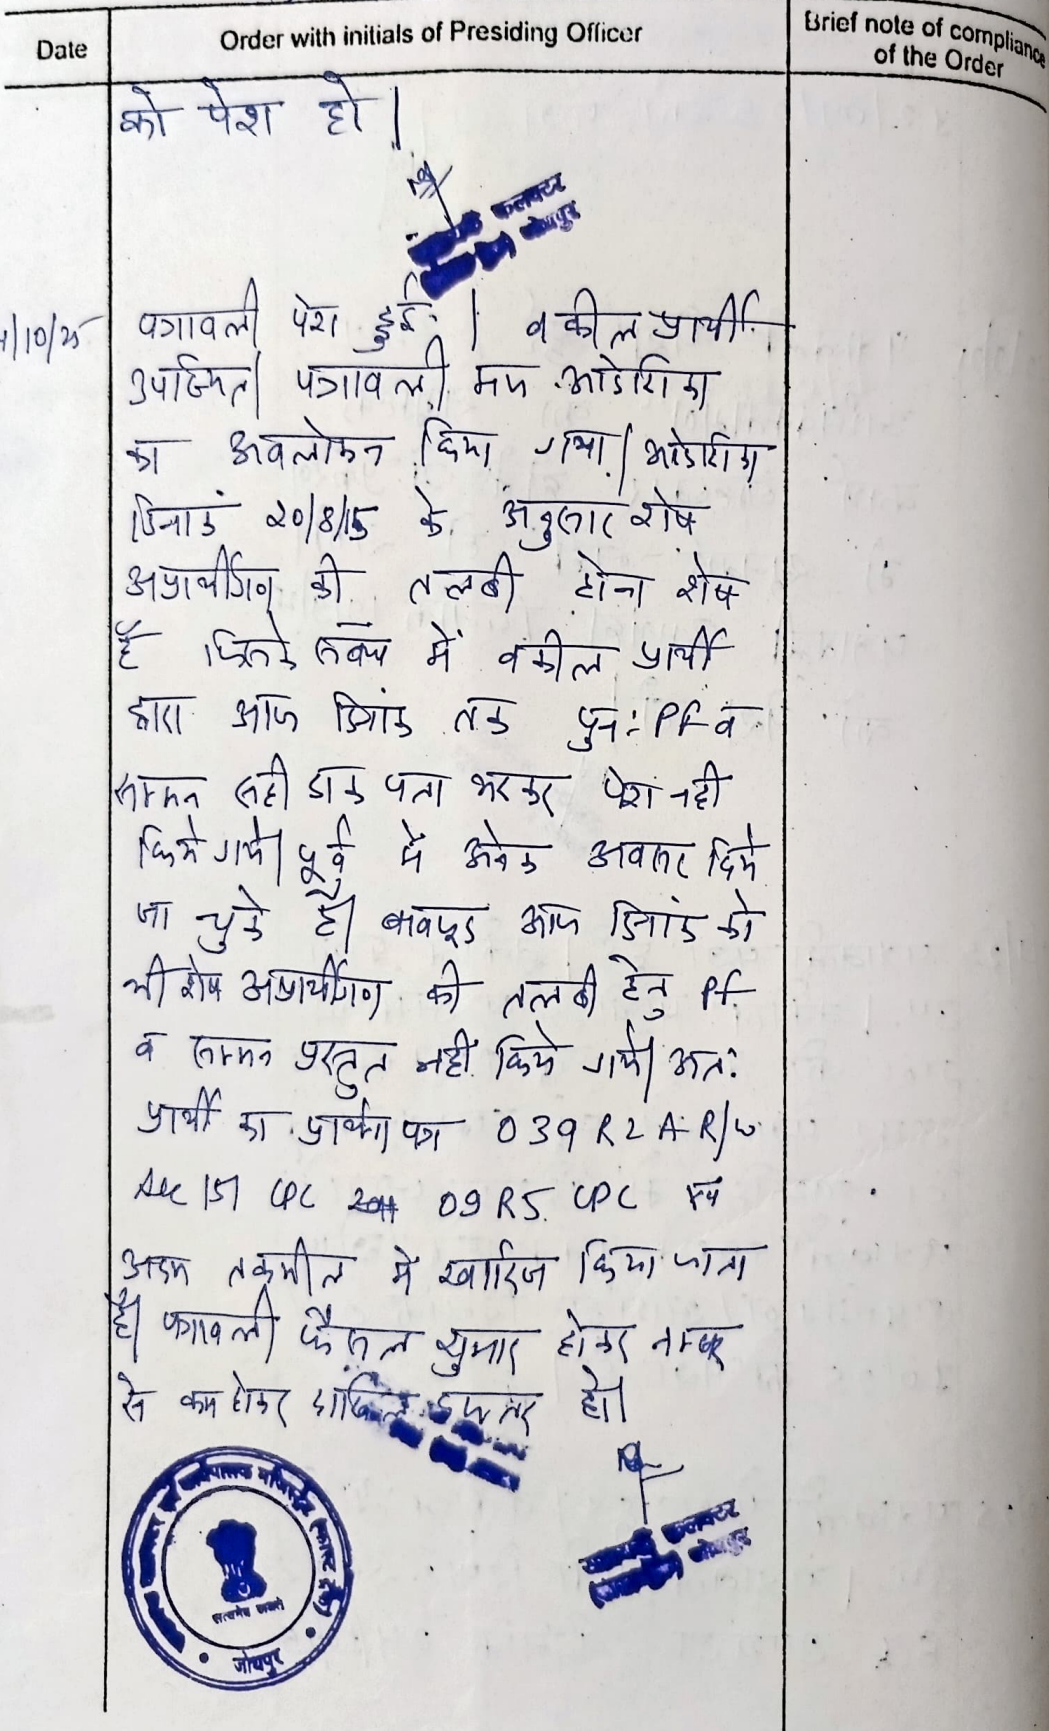 Date
Order with initials of Presiding Officer
Brief note of compliance
of the Order
को पेश हो |
कलक्टर
जोधपुर
/10/25 पत्रावली पेश हुई | वकील प्रार्थी
उपस्थित| पत्रावली मय आदेशिका
का अवलोकन किया गया| आदेशिका
दिनांक 20/8/15 के अनुसार शेष
अप्रार्थीगण की तलबी होना शेष
है जिसके संबंध में वकील प्रार्थी
द्वारा आज दिनांक तक पुनः PF व
सम्मन सही डाक पता भरकर पेश नही
किये गये| पूर्व में अनेक अवसर दिये
जा चुके है| बावजूद आज दिनांक को
भी शेष अप्रार्थीगण की तलबी हेतु PF
व सम्मन प्रस्तुत नहीं किये गये| अतः
प्रार्थी का प्रार्थना पत्र 039 R2 A R/w
Sec 151 CPC 09 R5 CPC
अदम तकमील में खारिज किया जाता
है| पत्रावली फैसल शुमार होकर नम्बर
से कम होकर दाखिल दफ्तर हो|
कलक्टर
जोधपुर
सत्यमेव जयते
जोधपुर